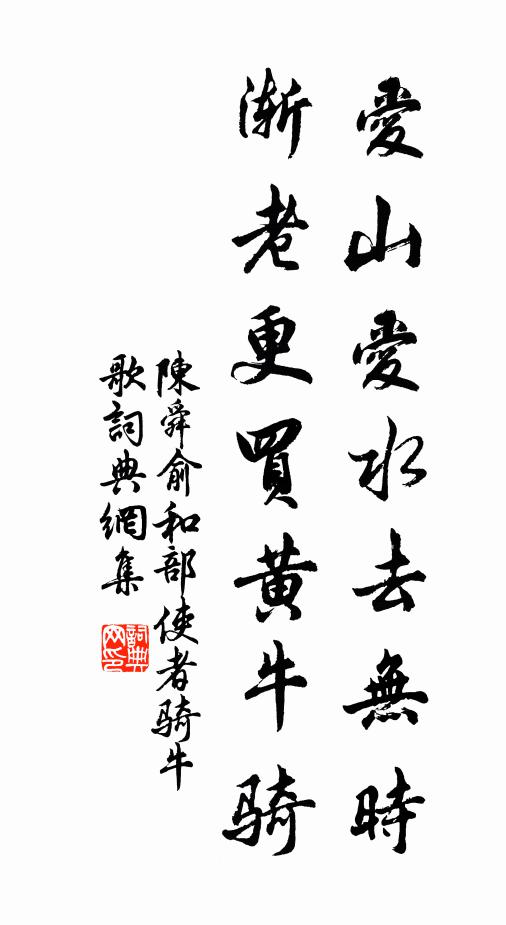 愛山愛水去無時
漸老更買黃牛騎
陳舜俞和部使者骑牛
歌詞典網集
詞典
网印